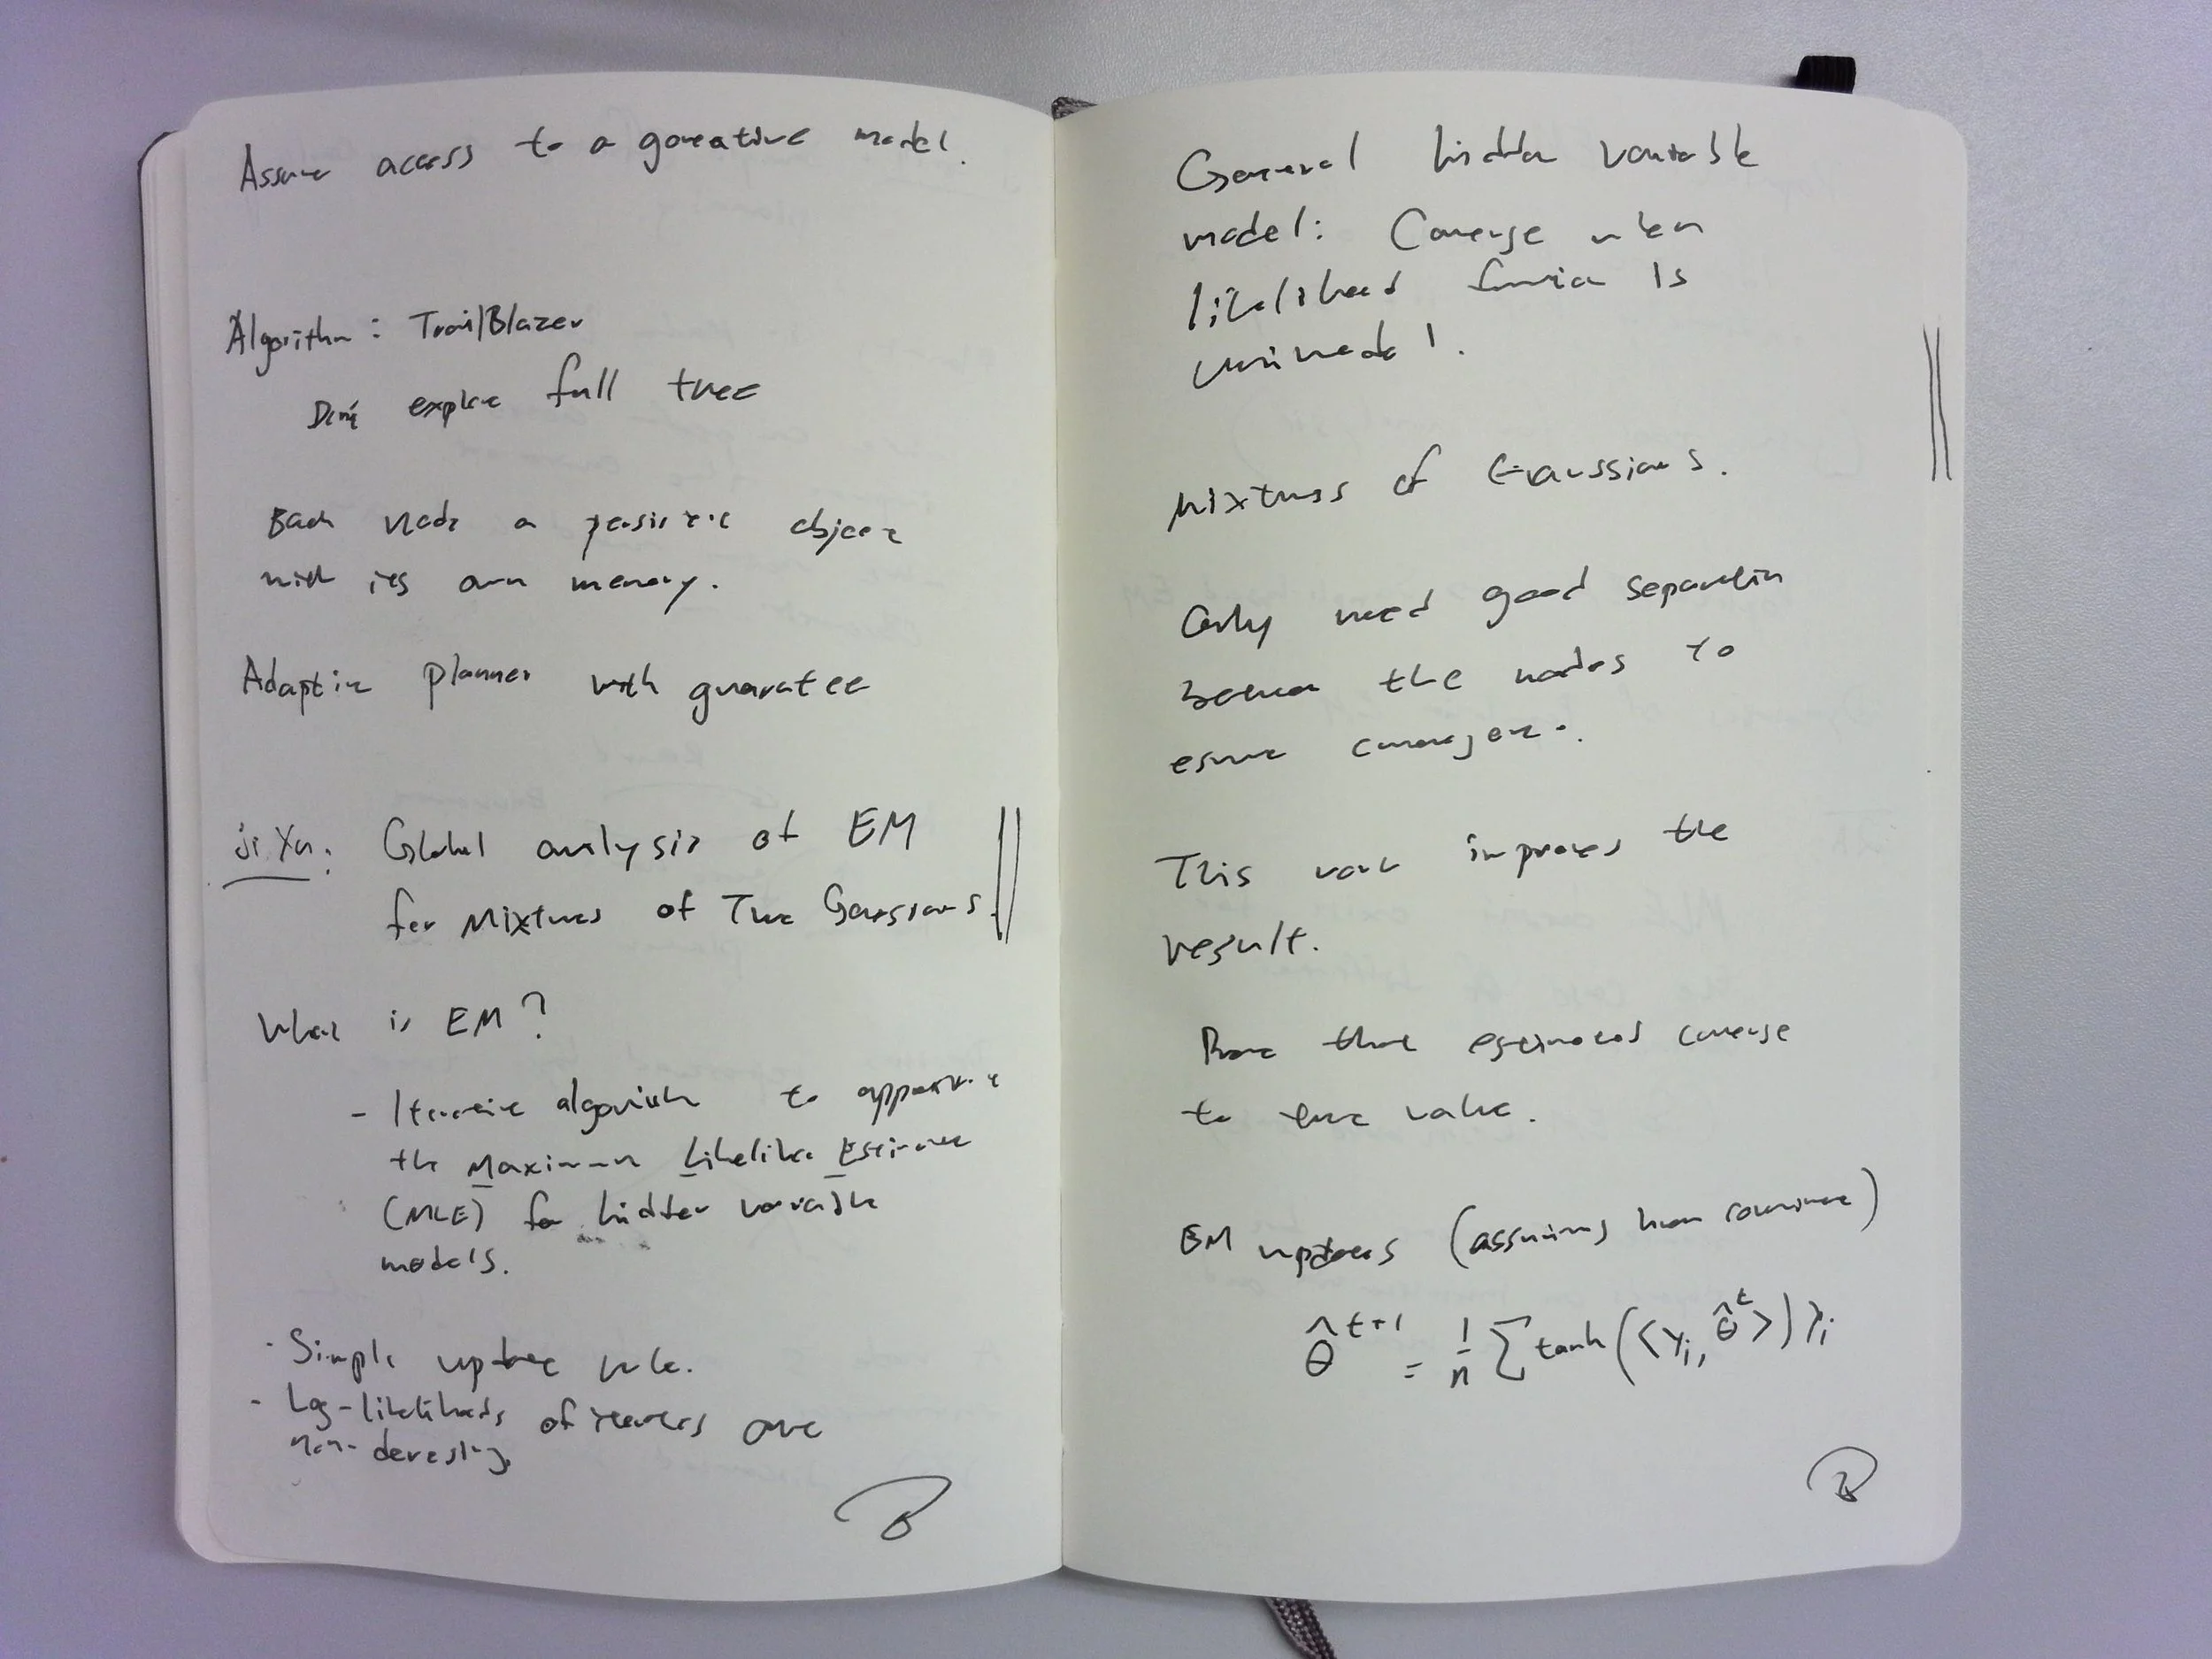 Assume access to a generative model.
Algorithm: TrailBlazer
Don't explore full tree
Each node a persistent object
with its own memory.
Adaptive planner with guarantee
Ji Xu: Global analysis of EM
for Mixtures of Two Gaussians.
What is EM?
- Iterative algorithm to approximate
the Maximum Likelihood Estimate
(MLE) for hidden variable
models.
- Simple update rule.
- Log-likelihoods of iterates are
non-decreasing
General hidden variable
model: Converge when
likelihood function is
unimodal.
Mixtures of Gaussians.
Only need good separation
between the modes to
ensure convergence.
This work improves the
result.
Prove that estimates converge
to true value.
EM updates (assuming known covariance)
θ̂^{t+1} = 1/n Σ tanh(<y_i, θ̂^t>) y_i